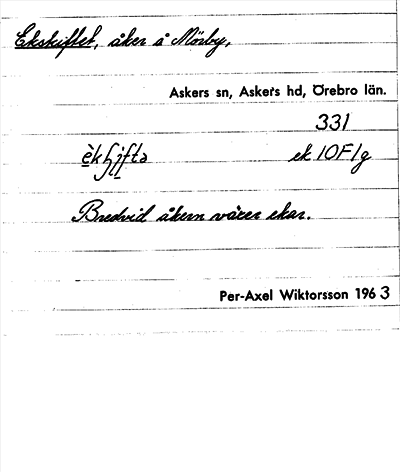 Ekskiftet, åker å Mörby,
Askers sn, Askers hd, Örebro län.
331
ek 10F1g
Bredvid åkern växer ekar.
Per-Axel Wiktorsson 1963